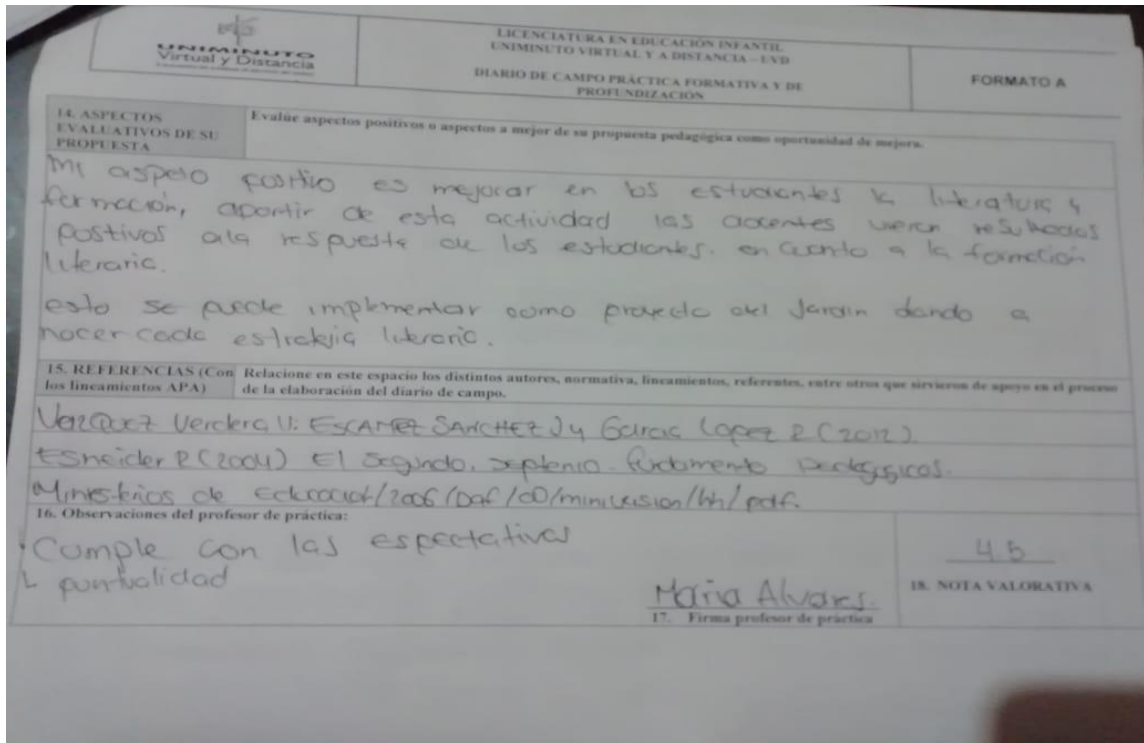 UNIMINUTO
Virtual y Distancia
LICENCIATURA EN EDUCACIÓN INFANTIL
UNIMINUTO VIRTUAL Y A DISTANCIA – UVD
DIARIO DE CAMPO PRÁCTICA FORMATIVA Y DE
PROFUNDIZACIÓN
FORMATO A
14. ASPECTOS
EVALUATIVOS DE SU
PROPUESTA
Evalúe aspectos positivos o aspectos a mejor de su propuesta pedagógica como oportunidad de mejora.
Mi aspeto positivo es mejorar en los estudiantes la literatura y
formación, apartir de esta actividad las docentes veran resultados
postivos ala respuesta de los estudiantes. en cuanto a la formación
literaria.
esto se puede implementar como proyecto del Jardin dando a
nocer cada estratejia literaria.
15. REFERENCIAS (Con
los lineamientos APA)
Relacione en este espacio los distintos autores, normativa, lineamientos, referentes, entre otros que sirvieron de apoyo en el proceso
de la elaboración del diario de campo.
Verdera SANCHEZ y Garcia Lopez R (2012).
Esneider R (2004) El segundo, septenio. fundamento pedagogicos.
Ministerios de /2006/ /pdf.
16. Observaciones del profesor de práctica:
Cumple con las espectativas
puntualidad
Maria Alvares.
17. Firma profesor de práctica
4.5
18. NOTA VALORATIVA